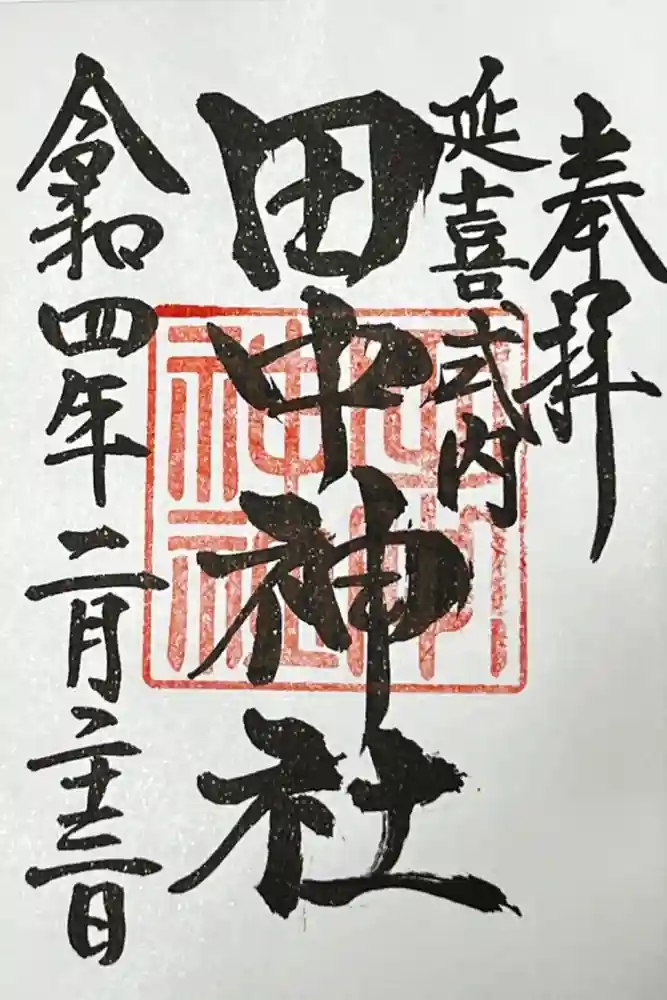 奉拝
延喜式内
田中神社
令和四年二月二十三日
田中
神社